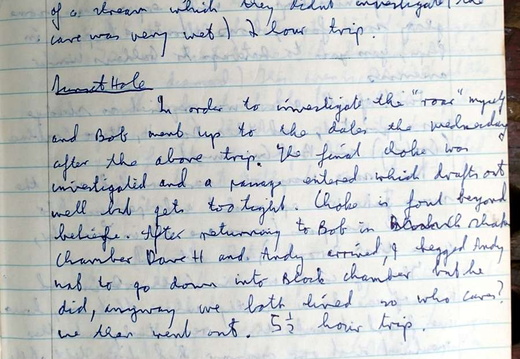 of a stream which they didnt investigate (the
cave was very wet) 2 hour trip.
Sunset Hole
In order to investigate the "roar" myself
and Bob went up to the dales the wednesday
after the above trip. The final choke was
investigated and a passage entered which drafts out
well but gets too tight. Choke is foul beyond
beliefe. After returning to Bob in
Chamber Dave H and Andy arrived, I begged Andy
not to go down into Block chamber but he
did, anyway we both lived so who cares?
we then went out. 5½ hour trip.